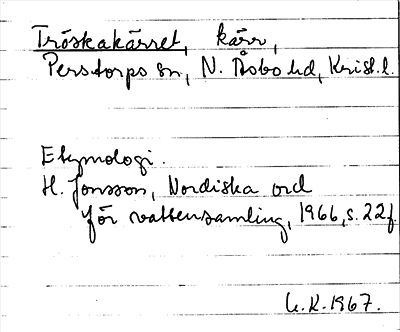 Tröskakärret, kärr,
Perstorps sn, N. Åsbo hd, Krist. l.
Etymologi.
H. Jonsson, Nordiska ord
för vattensamling, 1966, s. 22f.
U.K. 1967.